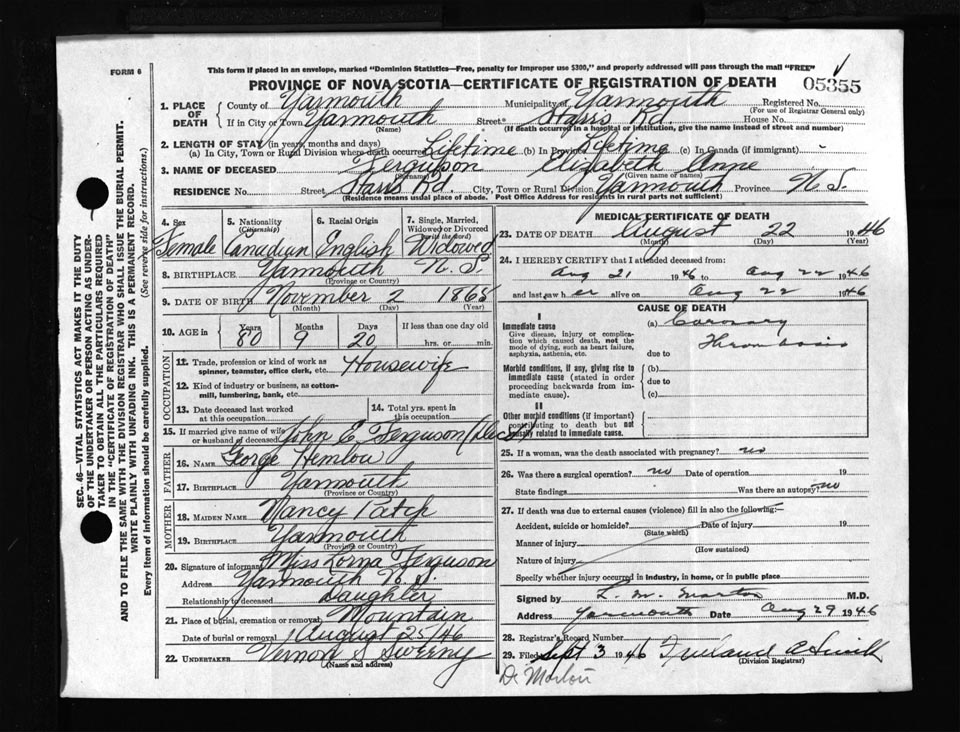 FORM 6
This form if placed in an envelope, marked "Dominion Statistics—Free, penalty for improper use $300," and properly addressed will pass through the mail "FREE"
PROVINCE OF NOVA SCOTIA—CERTIFICATE OF REGISTRATION OF DEATH
05355
1. PLACE OF DEATH
County of Yarmouth Municipality of Yarmouth Registered No.
(For use of Registrar General only)
If in City or Town Yarmouth Street Starrs Rd. House No.
(Name) (If death occurred in a hospital or institution, give the name instead of street and number)
2. LENGTH OF STAY (in years, months and days)
(a) In City, Town or Rural Division where death occurred Lifetime (b) In Province Lifetime (c) In Canada (if immigrant)
3. NAME OF DECEASED Ferguson Elizabeth Anne
(Surname) (Given name or names)
RESIDENCE No. Street Starrs Rd. City, Town or Rural Division Yarmouth Province N.S.
(Residence means usual place of abode. Post Office Address for residents in rural parts not sufficient)
4. Sex
Female
5. Nationality
(Citizenship)
Canadian
6. Racial Origin
English
7. Single, Married, Widowed or Divorced
(write the word)
Widowed
8. BIRTHPLACE Yarmouth N.S.
(Province or Country)
9. DATE OF BIRTH November 2 1865
(Month) (Day) (Year)
10. AGE in
Years Months Days If less than one day old
80 9 20 hrs. or min.
OCCUPATION
11. Trade, profession or kind of work as spinner, teamster, office clerk, etc. Housewife
12. Kind of industry or business, as cotton-mill, lumbering, bank, etc.
13. Date deceased last worked at this occupation
14. Total yrs. spent in this occupation
15. If married give name of wife or husband of deceased John E. Ferguson (dec)
FATHER
16. NAME George Hemlow
17. BIRTHPLACE Yarmouth
(Province or Country)
MOTHER
18. MAIDEN NAME Nancy Patch
19. BIRTHPLACE Yarmouth
(Province or Country)
20. Signature of informant Miss Lorna Ferguson
Address Yarmouth N.S.
Relationship to deceased Daughter
21. Place of burial, cremation or removal Mountain
Date of burial or removal August 25/46
22. UNDERTAKER Vernon S Sweeny
(Name and address)
MEDICAL CERTIFICATE OF DEATH
23. DATE OF DEATH August 22 1946
(Month) (Day) (Year)
24. I HEREBY CERTIFY that I attended deceased from
Aug 21 1946 to Aug 22 1946
and last saw her alive on Aug 22 1946
CAUSE OF DEATH
I
Immediate cause
Give disease, injury or complication which caused death, not the mode of dying, such as heart failure, asphyxia, asthenia, etc.
(a) Coronary
Thrombosis
due to
Morbid conditions, if any, giving rise to immediate cause (stated in order proceeding backwards from immediate cause).
(b)
due to
(c)
II
Other morbid conditions (if important) contributing to death but not causally related to immediate cause.
25. If a woman, was the death associated with pregnancy? no
26. Was there a surgical operation? no Date of operation 19
State findings Was there an autopsy? no
27. If death was due to external causes (violence) fill in also the following:—
Accident, suicide or homicide? Date of injury 19
(State which)
Manner of injury
(How sustained)
Nature of injury
Specify whether injury occurred in industry, in home, or in public place
Signed by L. M. Morton M.D.
Address Yarmouth Date Aug 29 1946
28. Registrar's Record Number
29. Filed Sept 3 1946
(Division Registrar)
Dr Morton
SEC. 46—VITAL STATISTICS ACT MAKES IT THE DUTY
OF THE UNDERTAKER OR PERSON ACTING AS UNDER-
TAKER TO OBTAIN ALL THE PARTICULARS REQUIRED
IN THE "CERTIFICATE OF REGISTRATION OF DEATH"
AND TO FILE THE SAME WITH THE DIVISION REGISTRAR WHO SHALL ISSUE THE BURIAL PERMIT.
WRITE PLAINLY WITH UNFADING INK. THIS IS A PERMANENT RECORD.
Every item of information should be carefully supplied. (See reverse side for instructions.)